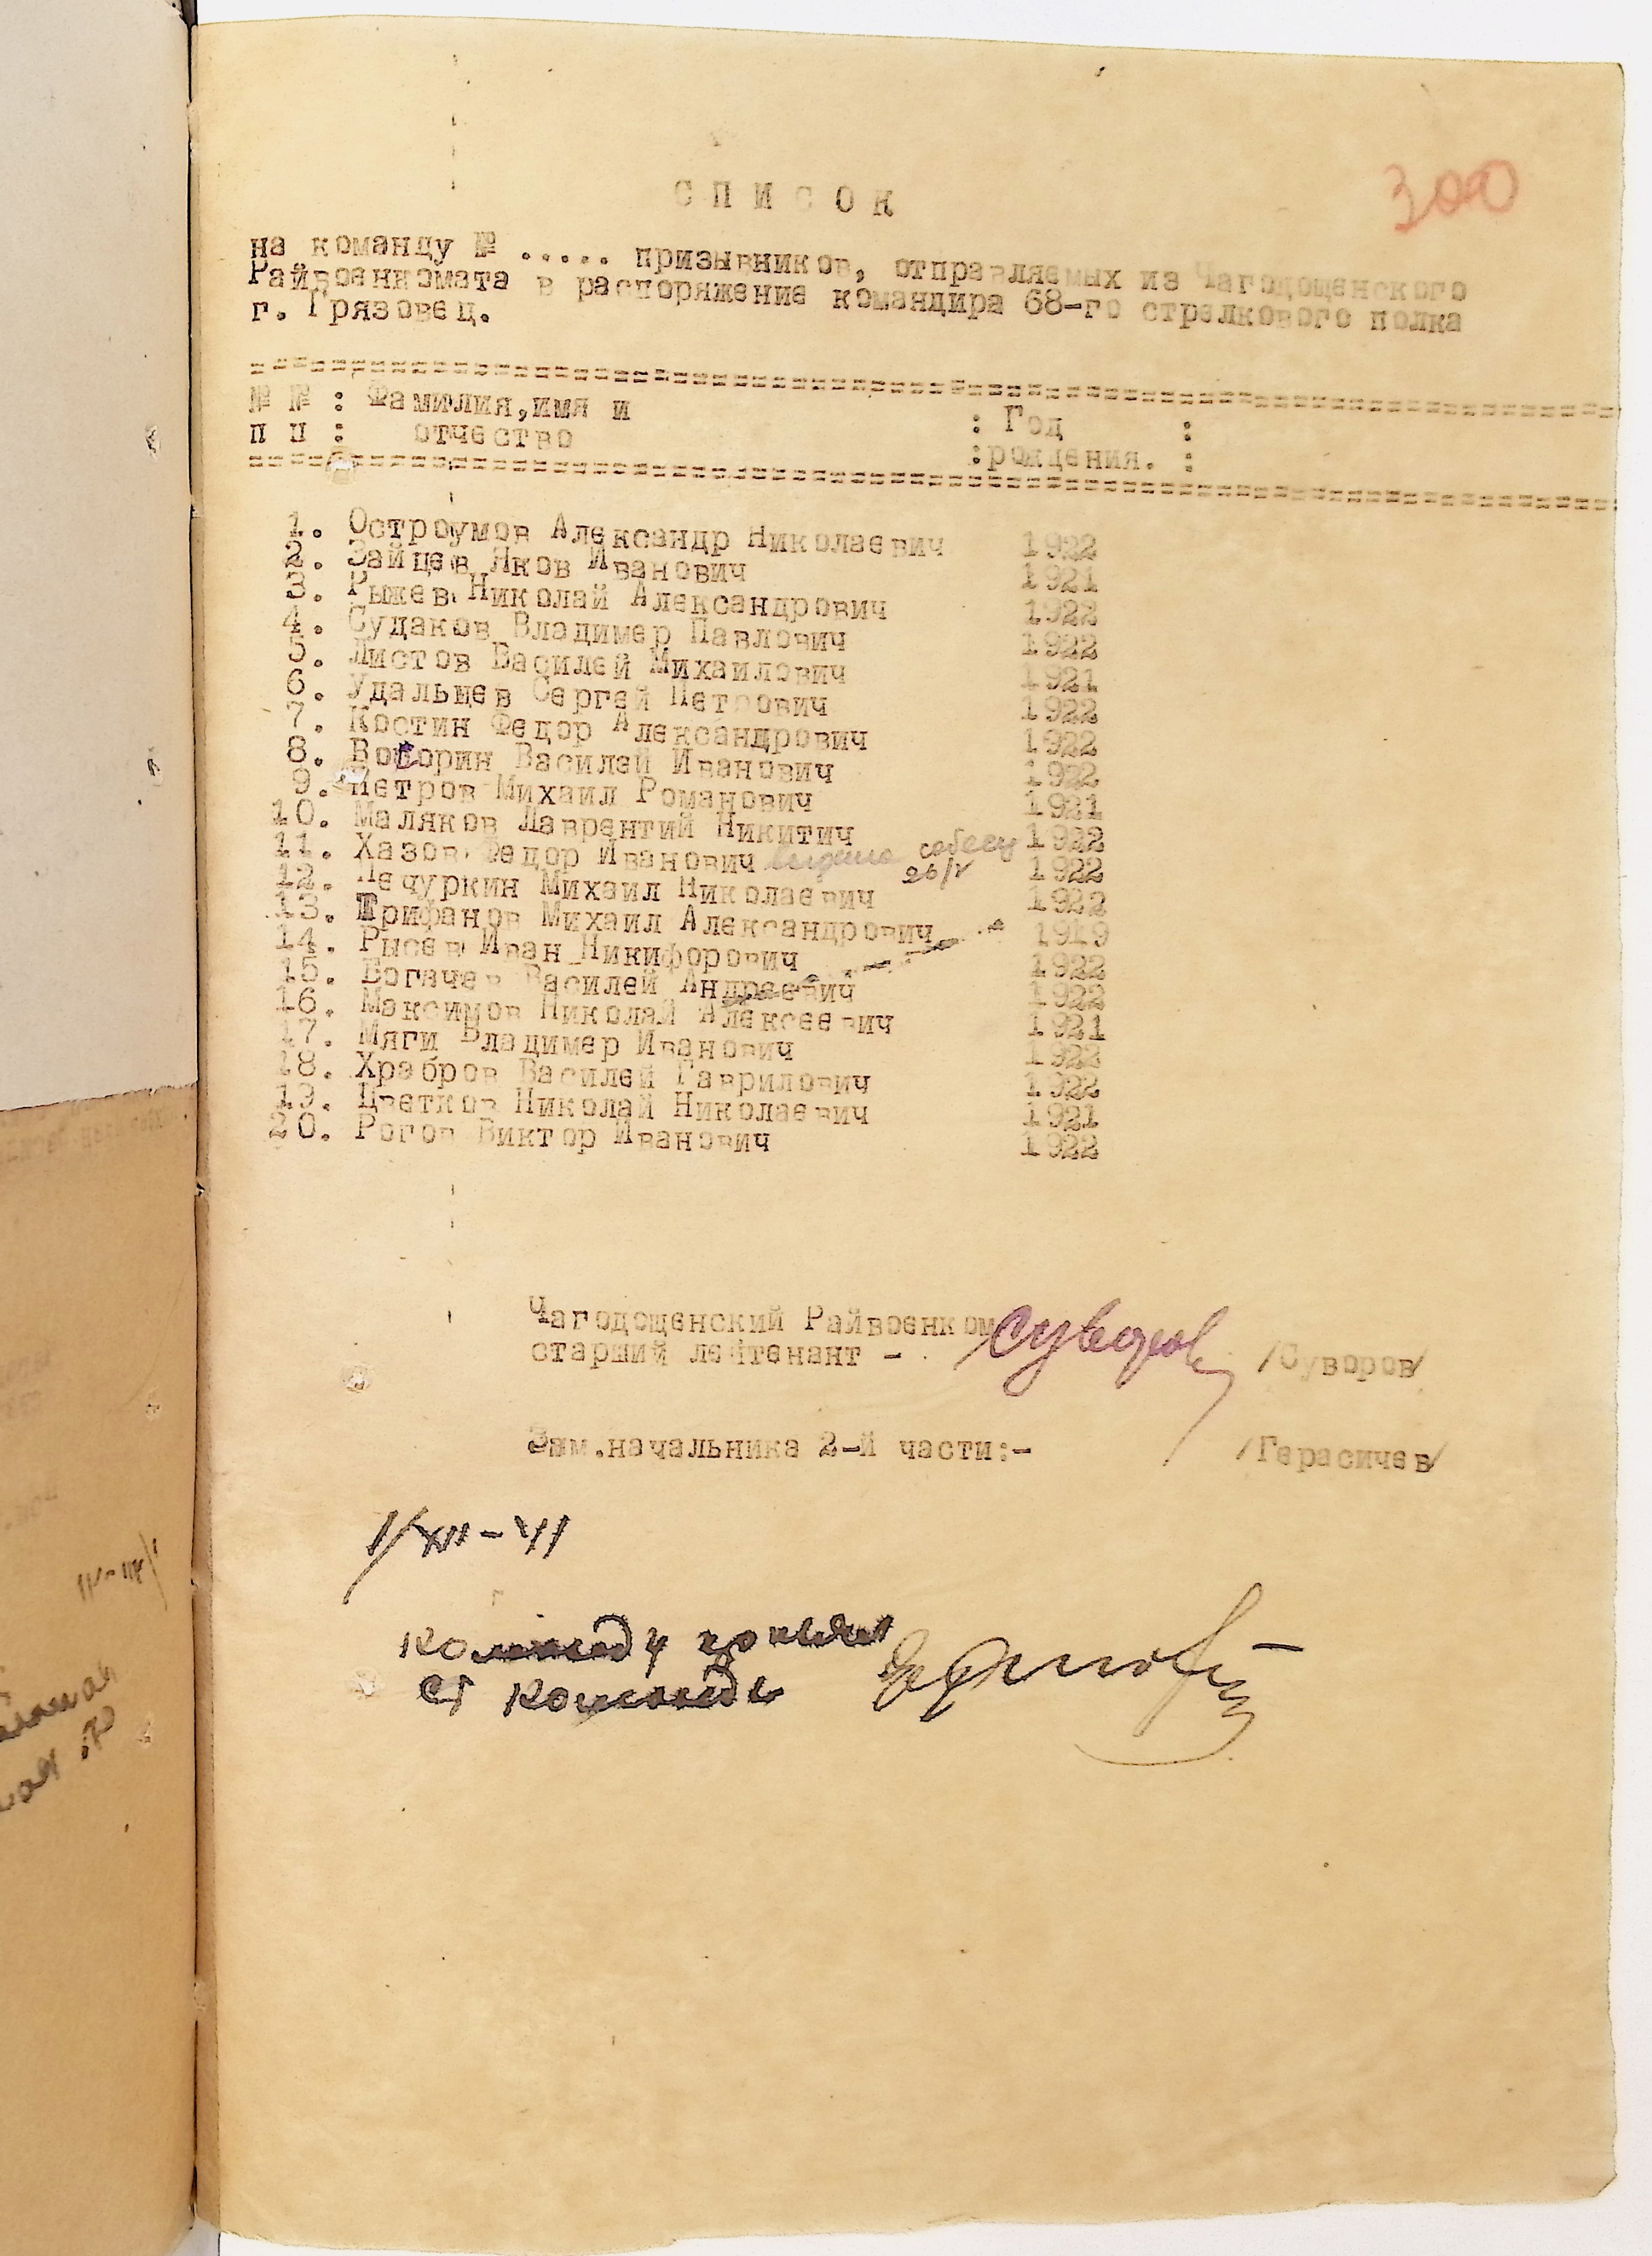 300
С П И С О К
на команду № ..... призывников, отправляемых из Чагодощенского
Райвоенкомата в распоряжение командира 68-го стрелкового полка
г. Грязовец.
№ № : Фамилия,имя и : Год :
п п : отчество :рождения. :
1. Остроумов Александр Николаевич 1922
2. Зайцев Яков Иванович 1921
3. Рыжев Николай Александрович 1922
4. Судаков Владимер Павлович 1922
5. Листов Василей Михаилович 1921
6. Удальцев Сергей Петрович 1922
7. Костин Федор Александрович 1922
8. Василей Иванович 1922
9. Петров Михаил Романович 1921
10. Маляков Лаврентий Никитич 1922
11. Хазов Федор Иванович собесу 1922
26/V
12. Печуркин Михаил Николаевич 1922
13. Трифанов Михаил Александрович 1919
14. Рысев Иван Никифорович 1922
15. Богачев Василей Андреевич 1922
16. Максимов Николай Алексеевич 1921
17. Мяги Владимер Иванович 1922
18. Храбров Василей Гаврилович 1922
19. Цветков Николай Николаевич 1921
20. Рогов Виктор Иванович 1922
Чагодощенский Райвоенком Суворов
старший лейтенант - /Суворов/
Зам.начальника 2-й части:- /Герасичев/
1/XII-41
команду принял
ст команды